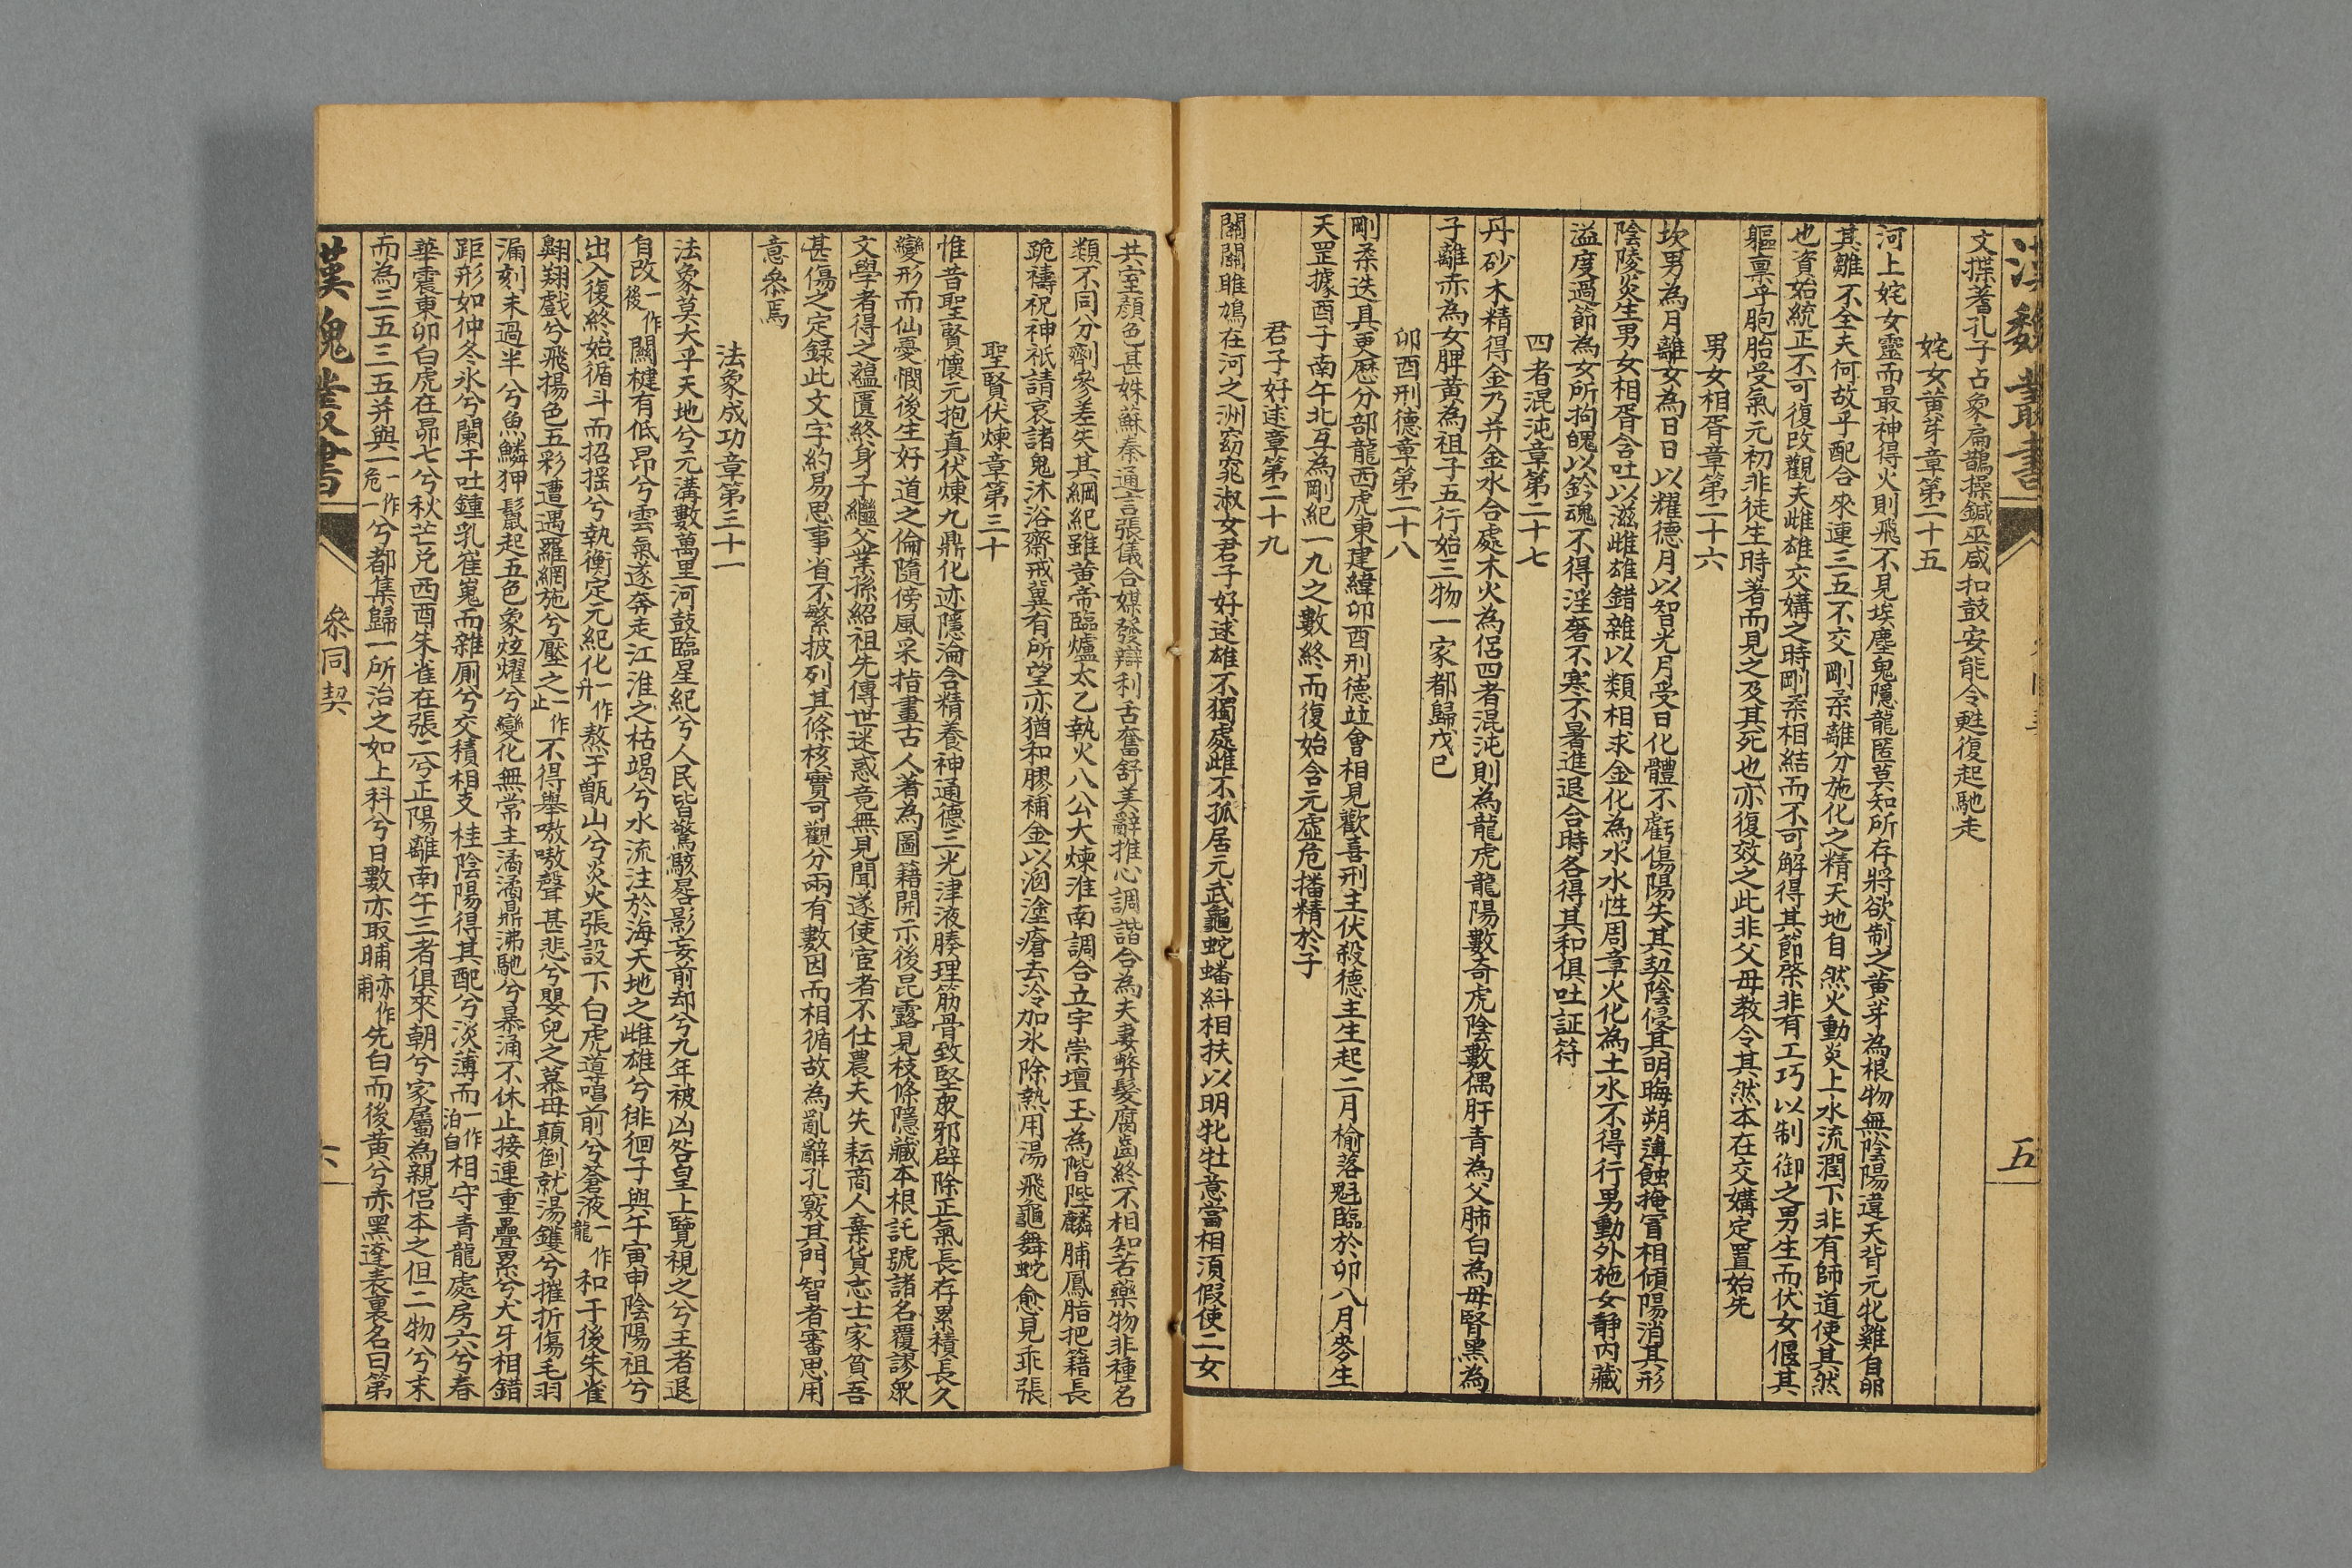 漢魏叢書
五
文揲蓍孔子占象扁鵲操鍼巫咸扣鼓安能令甦復起馳走
姹女黃芽章第二十五
河上姹女靈而最神得火則飛不見埃塵鬼隱龍匿莫知所存將欲制之黃芽為根物無陰陽違天背元牝雞自卵
其雛不全夫何故乎配合來連三五不交剛柔離分施化之精天地自然火動炎上水流潤下非有師道使其然
也資始統正不可復改觀夫雌雄交媾之時剛柔相結而不可解得其節棨非有工巧以制御之男生而伏女偃其
軀稟乎胞胎受氣元初非徒生時著而見之及其死也亦復效之此非父母教令其然本在交媾定置始先
男女相胥章第二十六
坎男為月離女為日日以耀德月以智光月受日化體不虧傷陽失其契陰侵其明晦朔薄蝕掩冒相傾陽消其形
陰陵災生男女相胥含吐以滋雌雄錯雜以類相求金化為水水性周章火化為土水不得行男動外施女靜內藏
溢度過節為女所拘魄以鈐魂不得淫奢不寒不暑進退合時各得其和俱吐証符
四者混沌章第二十七
丹砂木精得金乃并金水合處木火為侶四者混沌則為龍虎龍陽數奇虎陰數偶肝青為父肺白為母腎黑為
子離赤為女脾黃為祖子五行始三物一家都歸戊己
卯酉刑德章第二十八
剛柔迭具更歷分部龍西虎東建緯卯酉刑德竝會相見歡喜刑主伏殺德主生起二月榆落魁臨於卯八月麥生
天罡據酉子南午北互為剛紀一九之數終而復始含元虛危播精於子
君子好逑章第二十九
關關雎鳩在河之洲窈窕淑女君子好逑雄不獨處雌不孤居元武龜蛇蟠糾相扶以明牝牡意當相須假使二女
共室顏色甚姝蘇秦通言張儀合媒發辯利舌奮舒美辭推心調諧合為夫妻弊髮腐齒終不相知若藥物非種名
類不同分劑參差失其綱紀雖黃帝臨爐太乙執火八公大煉淮南調合立宇崇壇玉為階陛麟脯鳳脂把籍長
跪禱祝神祇請哀諸鬼沐浴齋戒冀有所望亦猶和膠補金以滷塗瘡去冷加氷除熱用湯飛龜舞蛇愈見乖張
聖賢伏煉章第三十
惟昔聖賢懷元抱真伏煉九鼎化迹隱淪含精養神通德三光津液腠理筋骨致堅衆邪辟除正氣長存累積長久
變形而仙憂憫後生好道之倫隨傍風采指畫古人著為圖籍開示後昆露見枝條隱藏本根託號諸名覆謬衆
文學者得之韞匱終身子繼父業孫紹祖先傳世迷惑竟無見聞遂使宦者不仕農夫失耘商人棄貨志士家貧吾
甚傷之定録此文字約易思事省不繁披列其條核實可觀分兩有數因而相循故為亂辭孔竅其門智者審思用
意叅焉
法象成功章第三十一
法象莫大乎天地兮元溝數萬里河鼓臨星紀兮人民皆驚駭晷影妄前却兮九年被凶咎皇上覽視之兮王者退
自改一作後關楗有低昂兮雲氣遂奔走江淮之枯竭兮水流注於海天地之雌雄兮徘徊子與午寅申陰陽祖兮
出入復終始循斗而招摇兮執衡定元紀化一作升熬于甑山兮炎火張設下白虎導唱前兮蒼液一作龍和于後朱雀
翺翔戲兮飛揚色五彩遭遇羅網施兮壓之一作止不得舉嗷嗷聲甚悲兮嬰兒之慕母顛倒就湯鑊兮摧折傷毛羽
漏刻未過半兮魚鱗狎鬣起五色象炫燿兮變化無常主潏潏鼎沸馳兮暴涌不休止接連重疊累兮犬牙相錯
距形如仲冬氷兮闌干吐鍾乳崔嵬而雜厠兮交積相支桂陰陽得其配兮淡薄而一作泊自相守青龍處房六兮春
華震東卯白虎在昴七兮秋芒兌西酉朱雀在張二兮正陽離南午三者俱來朝兮家屬為親侶本之但二物兮末
而為三五三五并與一一作危一兮都集歸一所治之如上科兮日數亦取晡亦作甫先白而後黃兮赤黑達表裏名曰第
漢魏叢書
叅同契
六